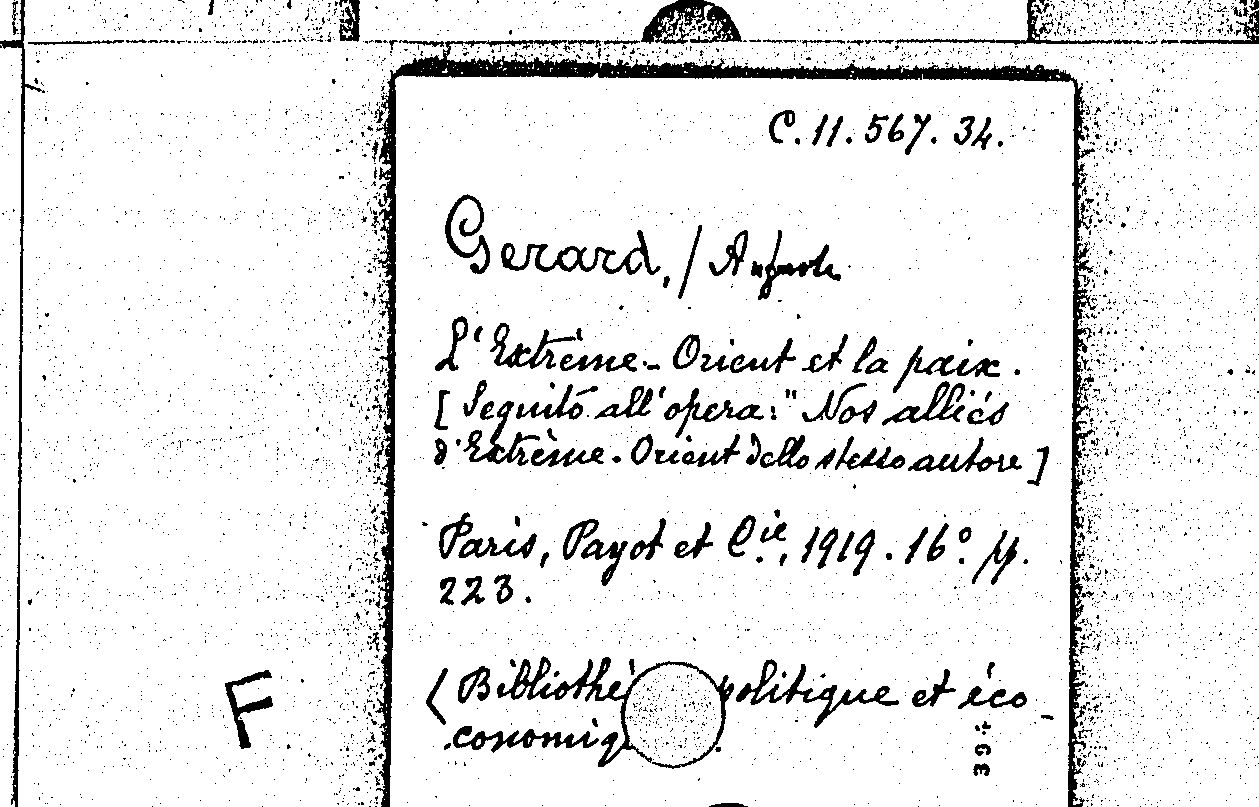 C. 11. 567. 34.
Gerard, / Auguste
L'Extrème-Orient et la paix.
[Seguito all'opera: "Nos alliés
d'Extrème-Orient dello stesso autore]
Paris, Payot et Cie., 1919. 16° pp.
223.
(Bibliothè politique et éco-
conomiq
F
39*